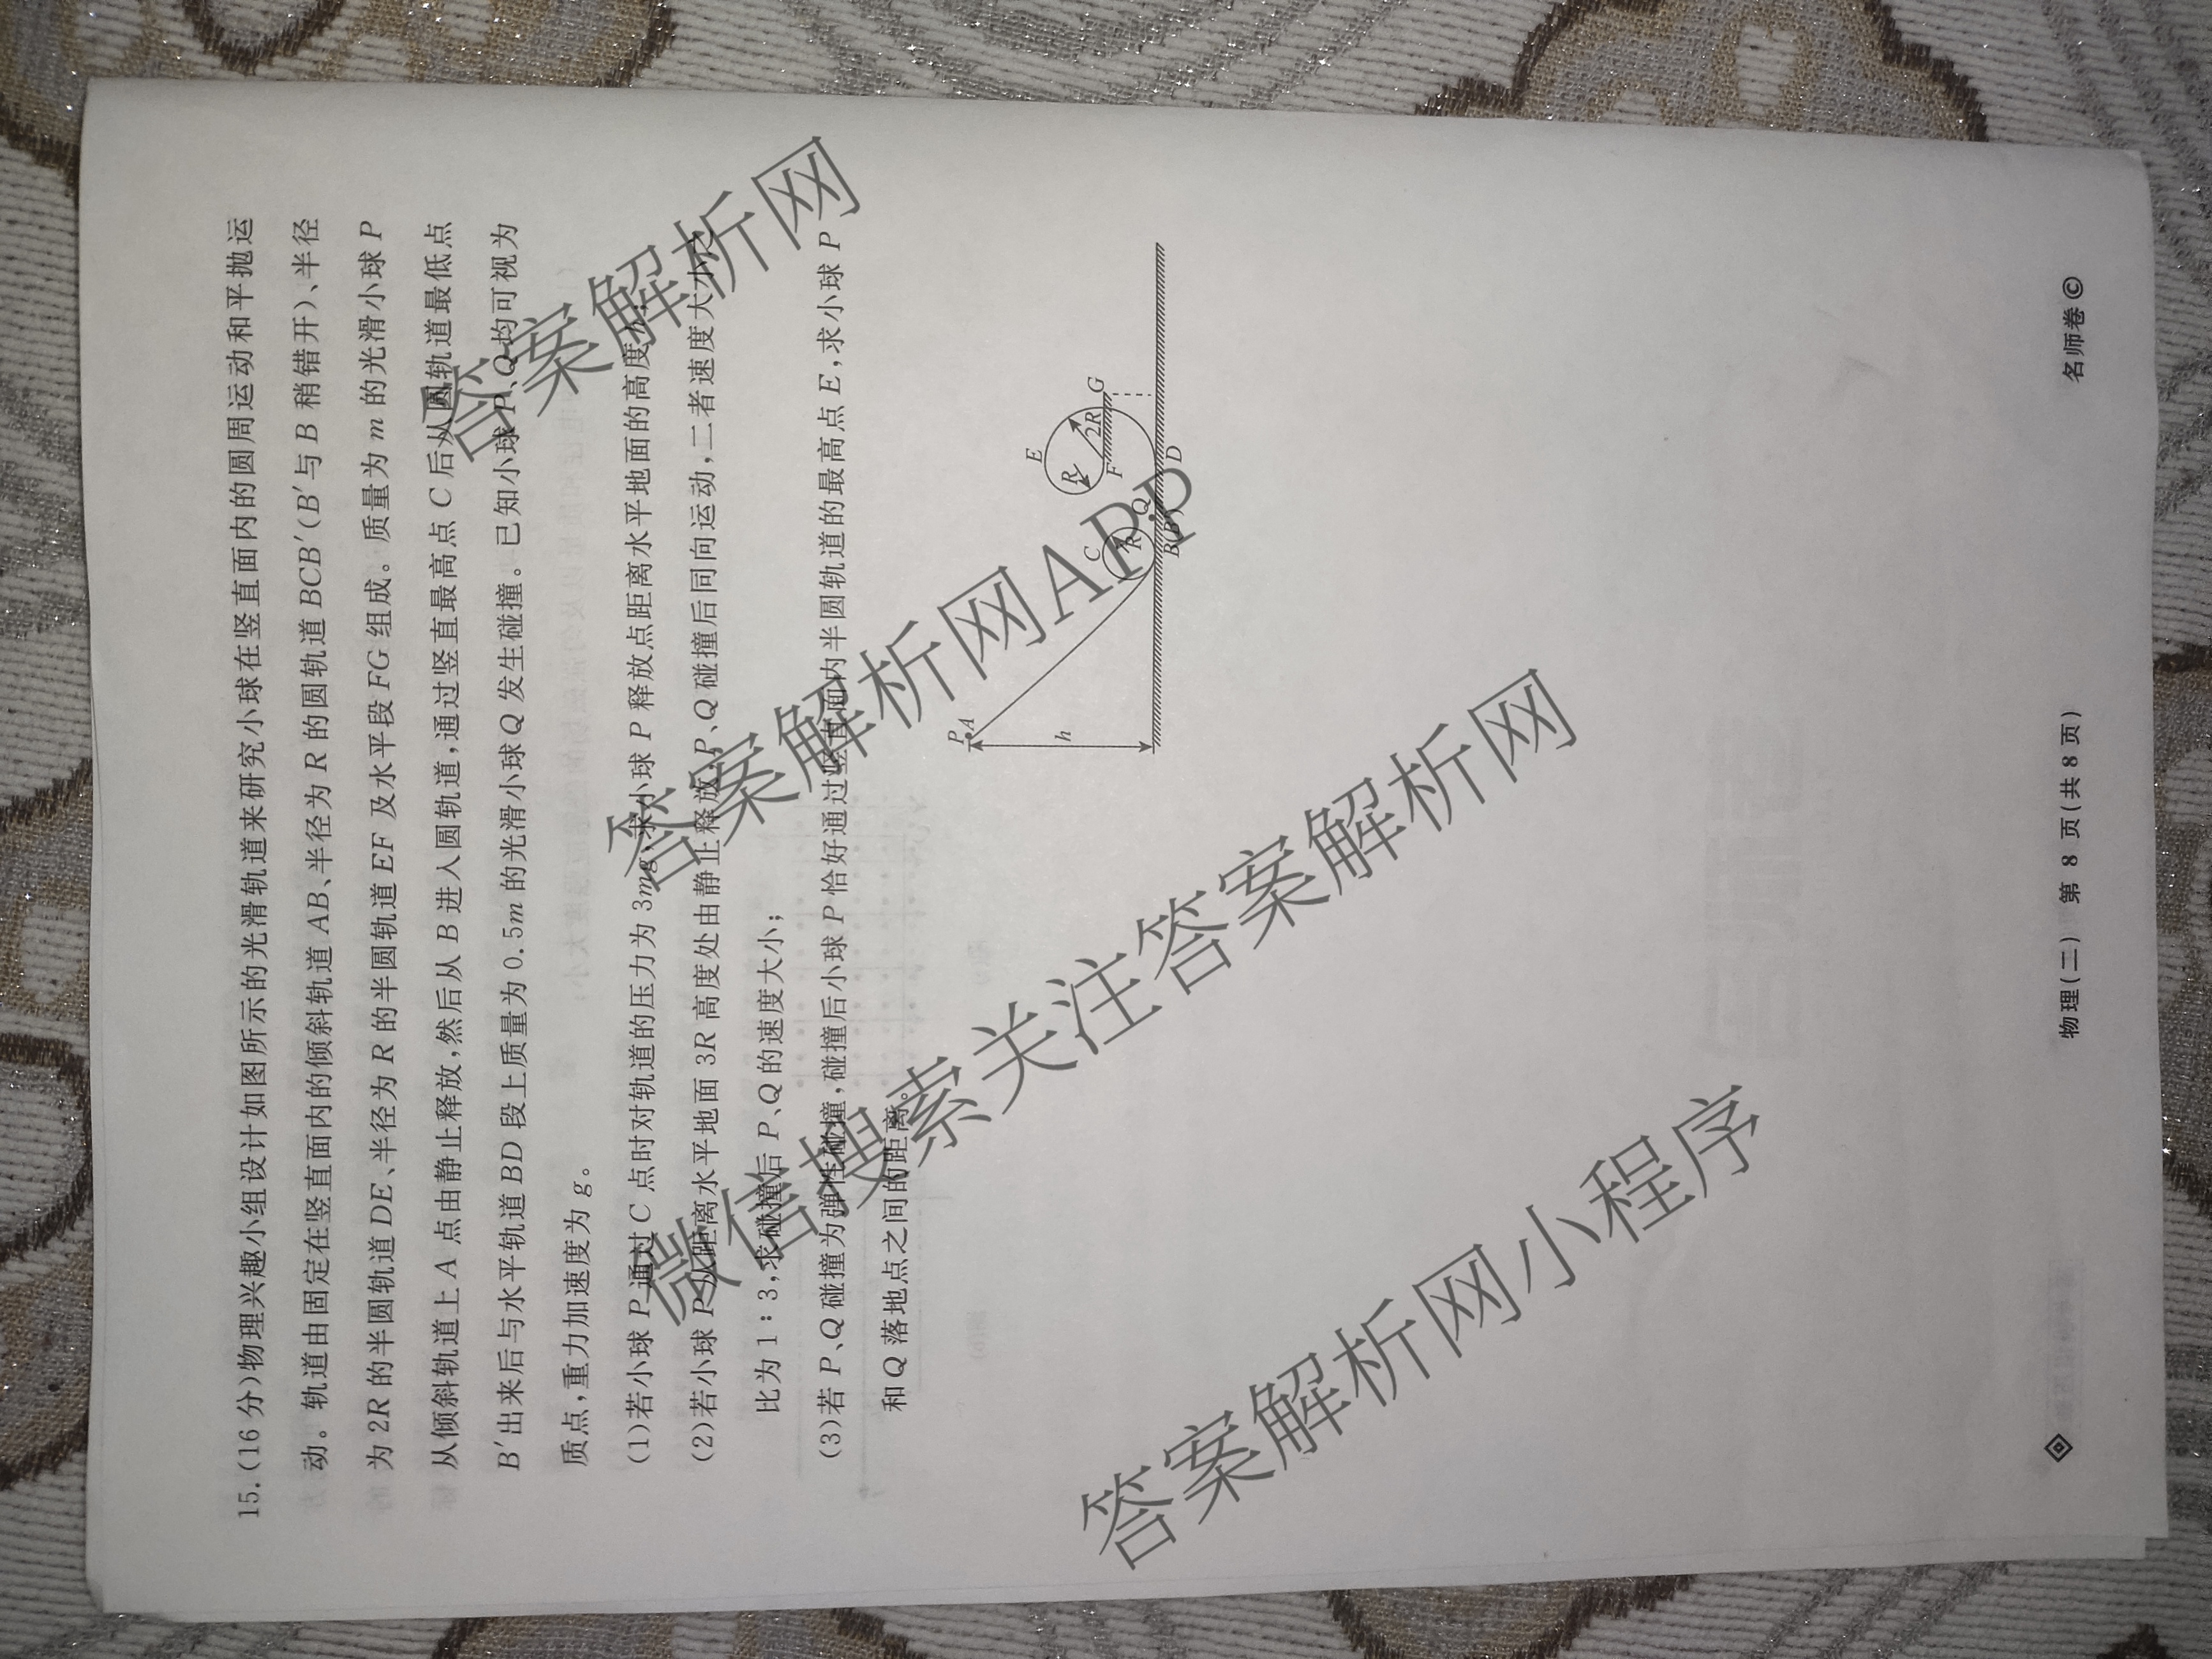 15.(16分)物理兴趣小组设计如图所示的光滑轨道来研究小球在竖直面内的圆周运动和平抛运
动。轨道由固定在竖直面内的倾斜轨道AB、半径为R的圆轨道BCB′(B′与B稍错开)、半径
为2R的半圆轨道DE、半径为R的半圆轨道EF及水平段FG组成。质量为m的光滑小球P
从倾斜轨道上A点由静止释放,然后从B进入圆轨道,通过竖直最高点C后从圆轨道最低点
B′出来后与水平轨道BD段上质量为0.5m的光滑小球Q发生碰撞。已知小球P、Q均可视为
质点,重力加速度为g。
(1)若小球P通过C点时对轨道的压力为3mg,求小球P释放点距离水平地面的高度h;
(2)若小球P从距离水平地面3R高度处由静止释放,P、Q碰撞后同向运动,二者速度大小之
比为1:3,求碰撞后P、Q的速度大小;
(3)若P、Q碰撞为弹性碰撞,碰撞后小球P恰好通过竖直面内半圆轨道的最高点E,求小球P
和Q落地点之间的距离。
P
A
h
C
R
Q
B(B′)
E
R
2R
F
G
D
答案解析网
答案解析网APP
微信搜索关注答案解析网
答案解析网小程序
物理(二) 第8页(共8页)
名师卷©